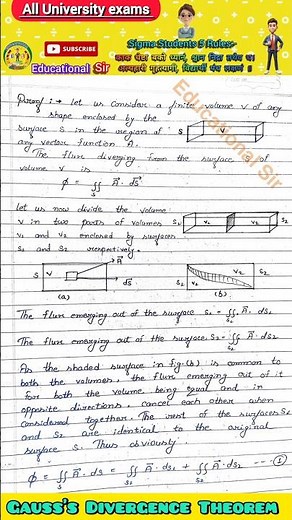 All University exams
SUBSCRIBE
Educational Sir
Sigma Students 5 Rules:-
काक चेष्टा बको ध्यानं, श्वान निद्रा तथैव च।
अल्पहारी गृहत्यागी, विद्यार्थी पंच लक्षणं ॥
Educational Sir
Proof :→ let us consider a finite volume V of any
shape enclosed by the
surface S in the region of
any vector function A.
S V
The flux diverging from the surface S of
volume V is
ϕ = ∬ A⃗ . dS⃗
S
let us now divide the volume
V in two parts of volumes
V₁ and V₂ enclosed by surfaces
S₁ and S₂ respectively.
V₂ S₂
S V A⃗ dS⃗
V₂ S₂
(a) (b)
The flux emerging out of the surface S₁ = ∬ A⃗ . ds₁
The flux emerging out of the surface S₂ = ∬ A⃗ . ds₂
S₂
As the shaded surface in fig.(b) is common to
both the volumes, the flux emerging out of it
for both the volume being equal and in
opposite directions, cancel each other when
considered together. The rest of the surfaces S₁
and S₂ are identical to the original
surface S. Thus obviously
ϕ = ∬ A⃗ . ds = ∬ A⃗ . ds₁ + ∬ A⃗ . ds₂ --- (1)
S S₁ S₂
Gauss's Divergence Theorem